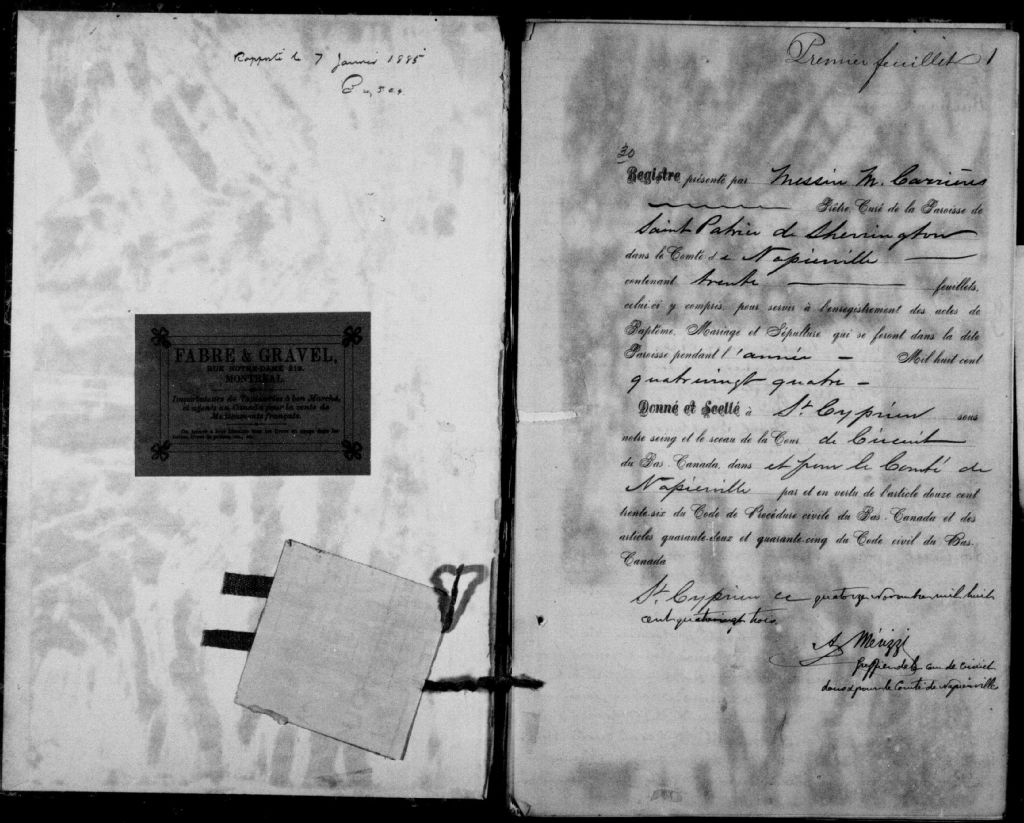 Rapporté le 7 Janvier 1885
FABRE & GRAVEL,
RUE NOTRE-DAME 219.
MONTREAL
Importateurs de Tapisseries à bon Marché,
et agents au Canada pour la vente de
Médicaments français.
Premier feuillet 1
30
Registre présenté par Messire M. Carrières
Prêtre, Curé de la Paroisse de
Saint Patrice de Sherrington
dans le Comté de Napierville
contenant trente feuillets,
celui-ci y compris, pour servir à l'enregistrement des actes de
Baptême, Mariage et Sépulture qui se feront dans la dite
Paroisse pendant l'année Mil huit cent
quatrevingt quatre
Donné et Scellé à St. Cyprien sous
notre seing et le sceau de la Cour de Circuit
du Bas-Canada, dans et pour le Comté de
Napierville par et en vertu de l'article douze cent
trente-six du Code de Procédure civile du Bas-Canada et des
articles quarante-deux et quarante-cinq du Code civil du Bas-
Canada
St. Cyprien ce quatorze Novembre mil huit
cent quatrevingt trois.
A Mérizzi
Greffier de la Cour de Circuit
dans & pour le Comté de Napierville